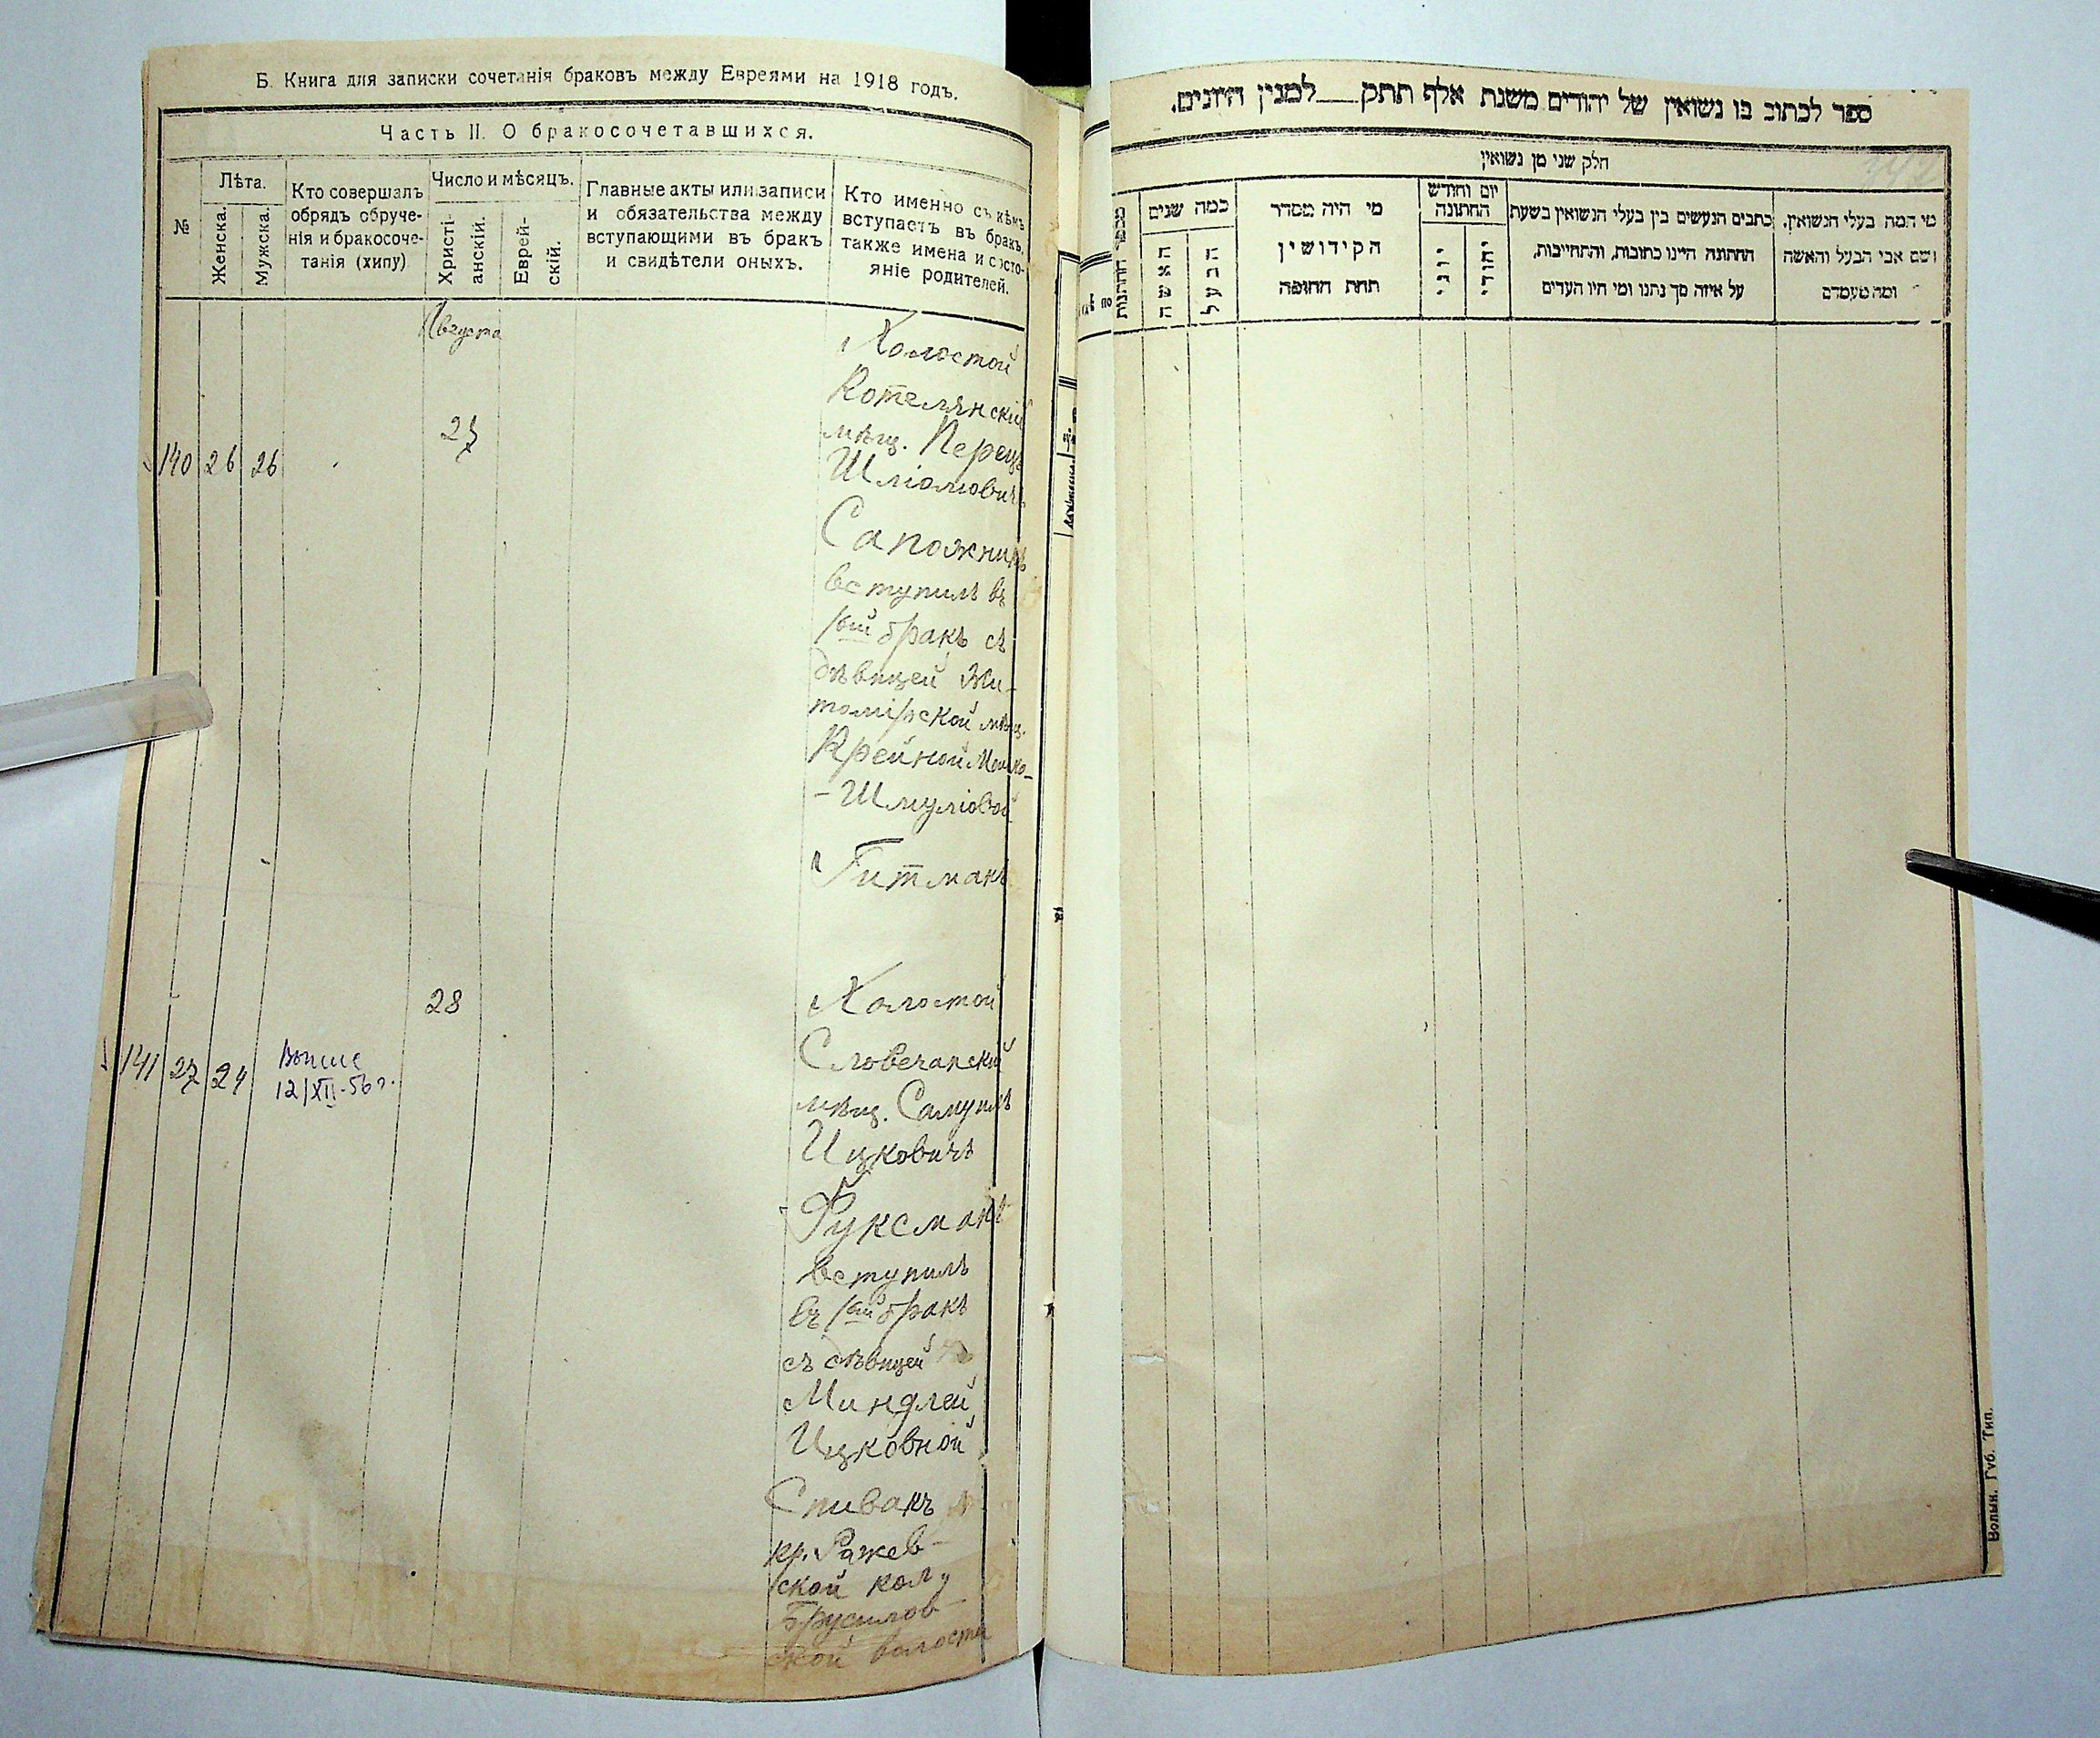 Б. Книга для записки сочетанія браковъ между Евреями на 1918 годъ.
Часть II. О бракосочетавшихся.
№
Лѣта.
Женска.
Мужска.
Кто совершалъ
обрядъ обруче-
нія и бракосоче-
танія (хипу)
Число и мѣсяцъ.
Христі-
анскій.
Еврей-
скій.
Главные акты или записи
и обязательства между
вступающими въ бракъ
и свидѣтели оныхъ.
Кто именно съ кѣмъ
вступаетъ въ бракъ,
также имена и состо-
яніе родителей.
Августа
140 26 26
27
Холостой
Котелянскій
мѣщ. Перецъ
Шліомовичъ
Сапожникъ
вступилъ въ
1ый бракъ съ
дѣвицей Жи-
томірской мѣщ.
Крейной Мошко-
-Шмуліовой
Гитманъ
141 27 24
12/XII-56 г.
28
Холостой
Словечанскій
мѣщ. Самуилъ
Ицковичъ
Фуксманъ
вступилъ
въ 1ый бракъ
съ дѣвицей
Миндлей
Ицковной
Спивакъ
кр. Ражев-
ской кол.
Брусилов-
ской волости
ספר לכתוב בו נשואין של יהודים משנת אלף תתק__למנין היונים.
חלק שני מן נשואין
מספר החתונות
כמה שנים
האשה
הבעל
מי היה מסדר
הקידושין
תחת החופה
יום וחודש
החתונה
יוני
יהודי
כתבים הנעשים בין בעלי הנשואין בשעת
החתונה היינו כתובות, והתחייבות,
על איזה סך נתנו ומי היו העדים
מי המה בעלי הנשואין,
ושם אבי הבעל והאשה
ומה מעמדם
Волын. Губ. Тип.